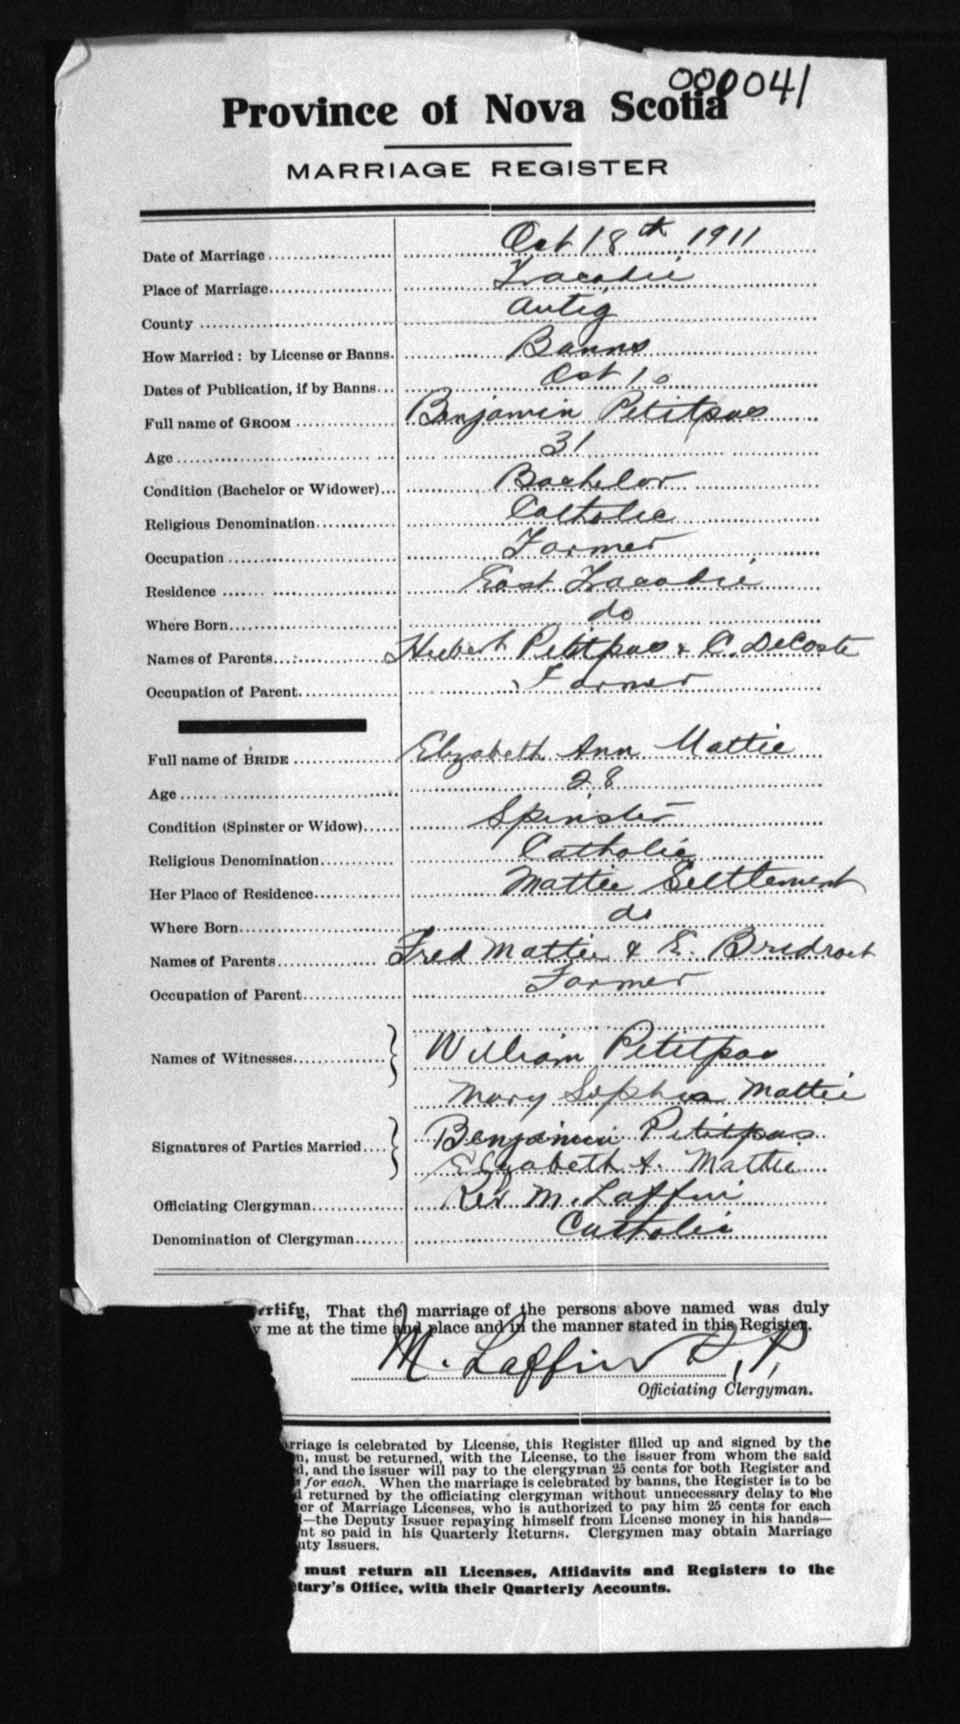 000041
Province of Nova Scotia
MARRIAGE REGISTER
Date of Marriage Oct 18th 1911
Place of Marriage Tracadie
County Antig
How Married: by License or Banns. Banns
Dates of Publication, if by Banns Oct 1
Full name of GROOM Benjamin Petitpas
Age 31
Condition (Bachelor or Widower) Bachelor
Religious Denomination Catholic
Occupation Farmer
Residence East Tracadie
Where Born do
Names of Parents Hubert Petitpas & C. DeCoste
Occupation of Parent Farmer
Full name of BRIDE Elizabeth Ann Mattie
Age 28
Condition (Spinster or Widow) Spinster
Religious Denomination Catholic
Her Place of Residence Mattie Settlement
Where Born do
Names of Parents Fred Mattie & E.
Occupation of Parent Farmer
Names of Witnesses William Petitpas
Mary Sophia Mattie
Signatures of Parties Married Benjamin Petitpas
Elizabeth A. Mattie
Officiating Clergyman Rev M. Laffin
Denomination of Clergyman Catholic
ertify, That the marriage of the persons above named was duly
y me at the time and place and in the manner stated in this Register.
M. Laffin P.P.
Officiating Clergyman.
rriage is celebrated by License, this Register filled up and signed by the
n, must be returned, with the License, to the issuer from whom the said
d, and the issuer will pay to the clergyman 25 cents for both Register and
for each. When the marriage is celebrated by banns, the Register is to be
d returned by the officiating clergyman without unnecessary delay to the
er of Marriage Licenses, who is authorized to pay him 25 cents for each
—the Deputy Issuer repaying himself from License money in his hands—
nt so paid in his Quarterly Returns. Clergymen may obtain Marriage
uty Issuers.
must return all Licenses, Affidavits and Registers to the
tary's Office, with their Quarterly Accounts.